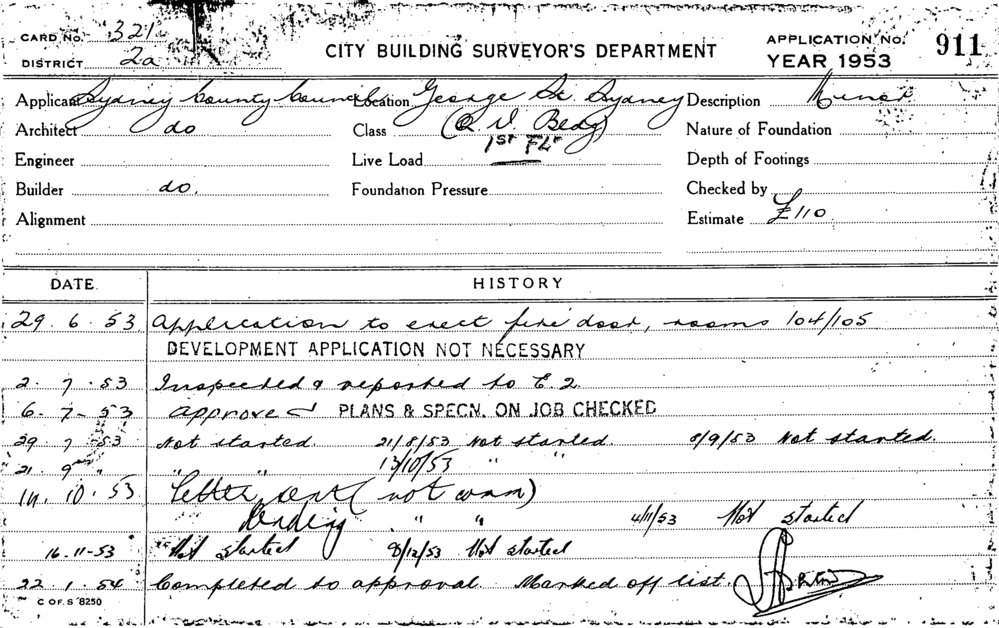 CARD NO. 321
CITY BUILDING SURVEYOR'S DEPARTMENT
APPLICATION NO. 911
DISTRICT 2a
YEAR 1953
Applicant Sydney County Council Location George St. Sydney Description Minor
Architect do Class (Q V Bldg) Nature of Foundation
1ST FLR
Engineer Live Load Depth of Footings
Builder do. Foundation Pressure Checked by
Alignment Estimate £110
DATE. HISTORY
29.6.53 Application to erect fire door, rooms 104/105
DEVELOPMENT APPLICATION NOT NECESSARY
2.7.53 Inspected & reported to E.2
6.7-53 approved PLANS & SPECN. ON JOB CHECKED
29 7 53 Not started 21/8/53 Not started 8/9/53 Not started.
21. 9 " " " 13/10/53 " "
10.53 Letter sent (not comm)
Pending " " 4/11/53 Not started
16.11-53 Not started 8/12/53 Not started
22.1.54 Completed to approval. Marked off list.
C OF. S 8250